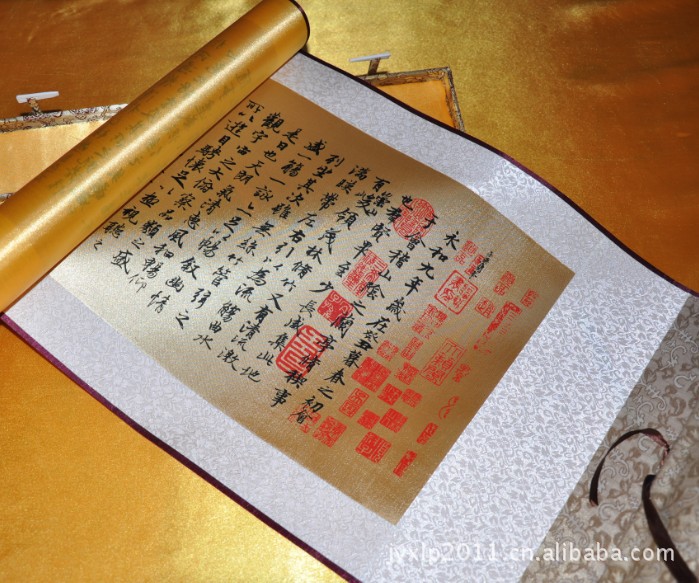 永和九年歲在癸丑暮春之初會
于會稽山陰之蘭亭脩稧事
也羣賢畢至少長咸集此地
有崇山峻領茂林脩竹又有清流激
湍暎帶左右引以為流觴曲水
列坐其次雖無絲竹管弦之
盛一觴一詠亦足以暢敘幽情
是日也天朗氣清惠風和暢仰
觀宇宙之大俯察品類之盛
所以遊目騁懷足以極視聽之
jyxlp2011.cn.alibaba.com